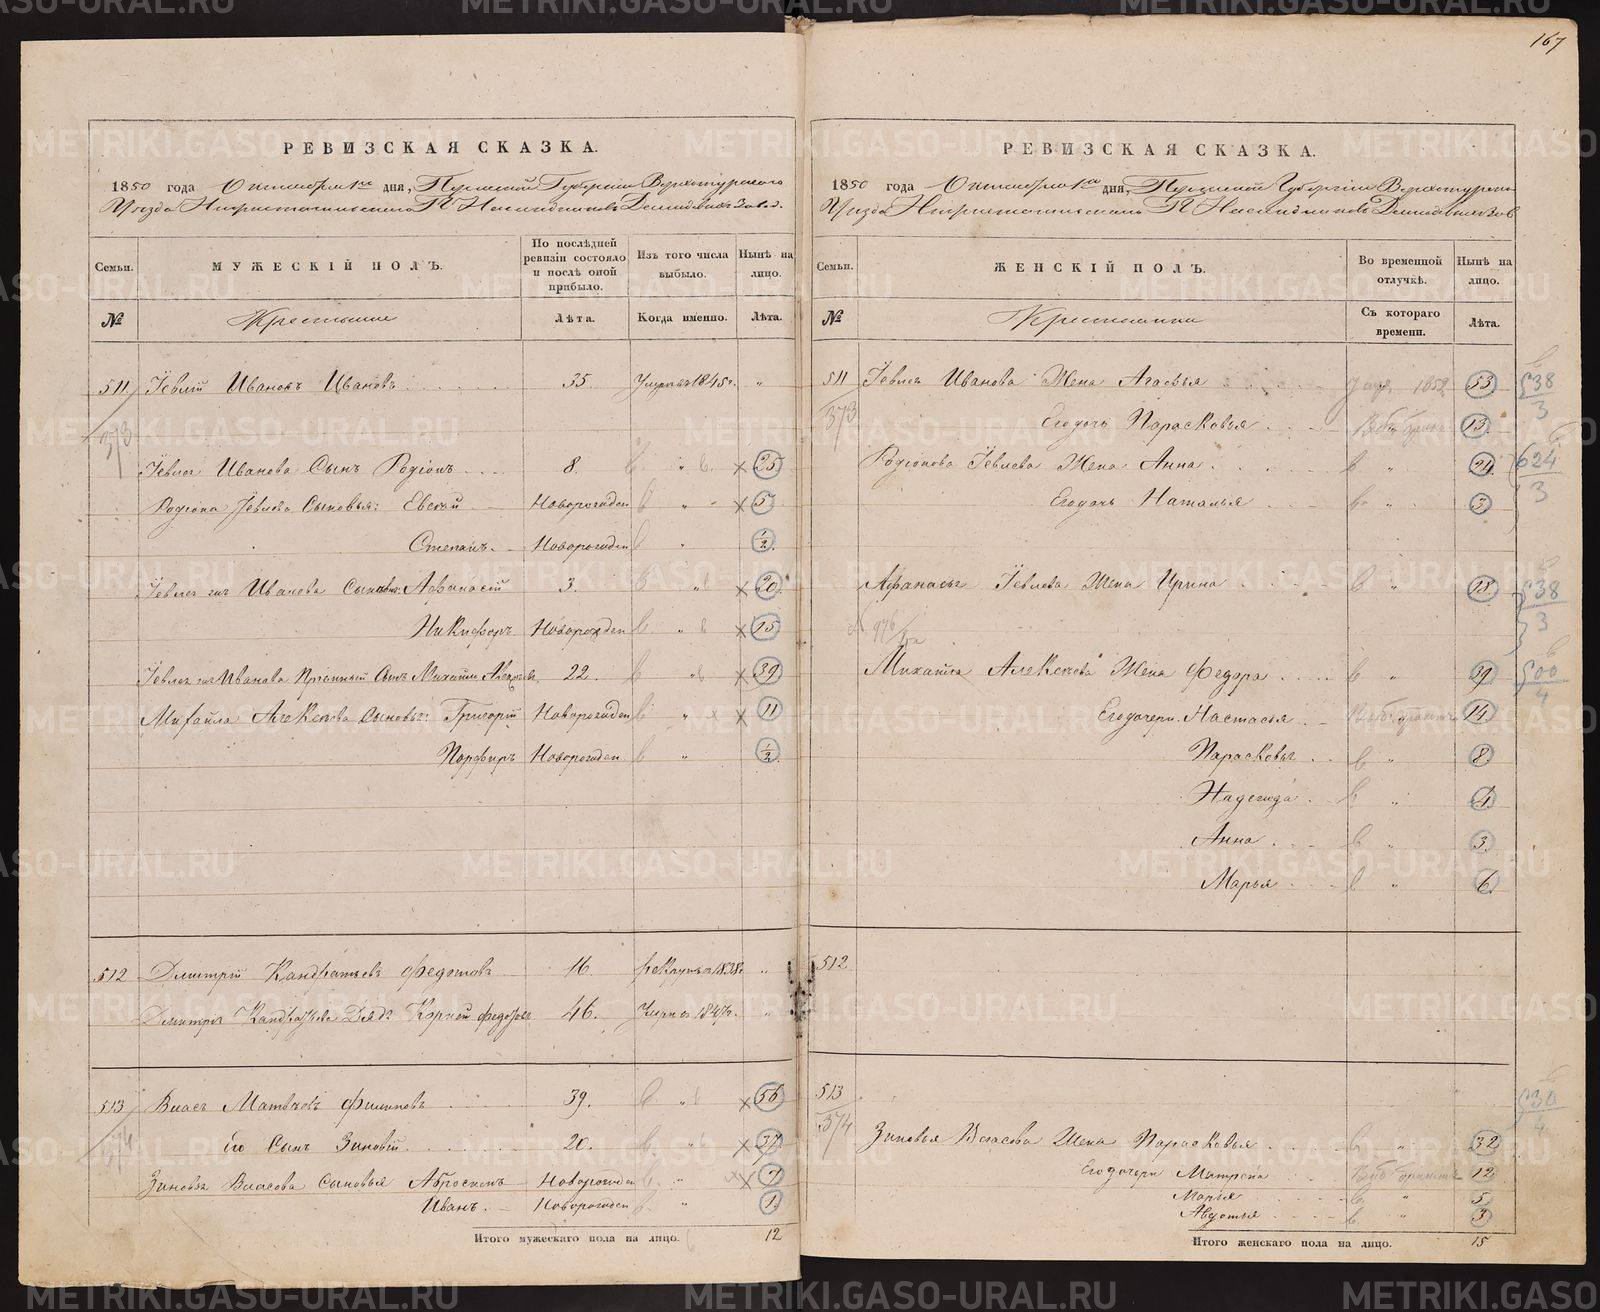 167
РЕВИЗСКАЯ СКАЗКА.
1850 года Октября 1го дня, Пермской Губернии Верхотурского
Уезда Нижнетагильского Г. Наследников Демидовых Завод.
Семьи.
МУЖЕСКІЙ ПОЛЪ.
По послѣдней ревизіи состояло и послѣ оной прибыло.
Изъ того числа выбыло.
Нынѣ на лицо.
№
Крестьяне
Лѣта.
Когда именно.
Лѣта.
511 Іевлій Ивановъ Ивановъ 35. Умеръ 1845г. "
373
Іевлія Иванова Сынъ Родіонъ 8. " 25
Родіона Іевлева Сыновья: Евсѣй Новорожден " 5
Степанъ. Новорожден " ½
Іевлія Иванова Сыновья: Афанасій 3. " 20
Никифоръ Новорожден " 15
Іевлія Иванова Пріемный Сынъ Михайло 22. " 39
Михайла Алексѣева Сыновья: Григорій Новорожден " 11
Порфиръ Новорожден " ½
512 Дмитрій Кандратьевъ Федотовъ 16. рекрутъ 1838г. "
Дмитрія Кандратьева Дядя Корнѣй Федотовъ 46. Умеръ 1847г. "
513 Власъ Матвѣевъ Филиповъ 39. " 56
374
Его Сынъ Зиновій 20. " 37
Зиновья Власова Сыновья Абросимъ Новорожден " 7
Иванъ. Новорожден " 1.
Итого мужескаго пола на лицо. 12
РЕВИЗСКАЯ СКАЗКА.
1850 года Октября 1го дня, Пермской Губерніи Верхотурского
Уезда Нижнетагильского Г. Наследников Демидовых Зав
Семьи.
ЖЕНСКІЙ ПОЛЪ.
Во временной отлучкѣ.
Нынѣ на лицо.
№
Крестьянки
Съ котораго времени.
Лѣта.
511 Іевлія Иванова Жена Агафья 1852 53
373
Его дочь Парасковья 13.
Родіонова Іевлева Жена Анна " 24
Его дочь Наталья " 3
Афанасья Іевлева Жена Ирина " 18.
Михайла Алексѣева Жена Федора " 39
Его дочери. Настасья 14.
Парасковья " 8
Надежда " 4
Анна " 3.
Марья " 6.
512
513
374
Зиновья Власова Жена Парасковья " 32
Его дочери Матрена 12
Марья " 5
Авдотья " 3
Итого женскаго пола на лицо. 15
638
3
624
3
638
3
600
4
630
4
METRIKI.GASO-URAL.RU